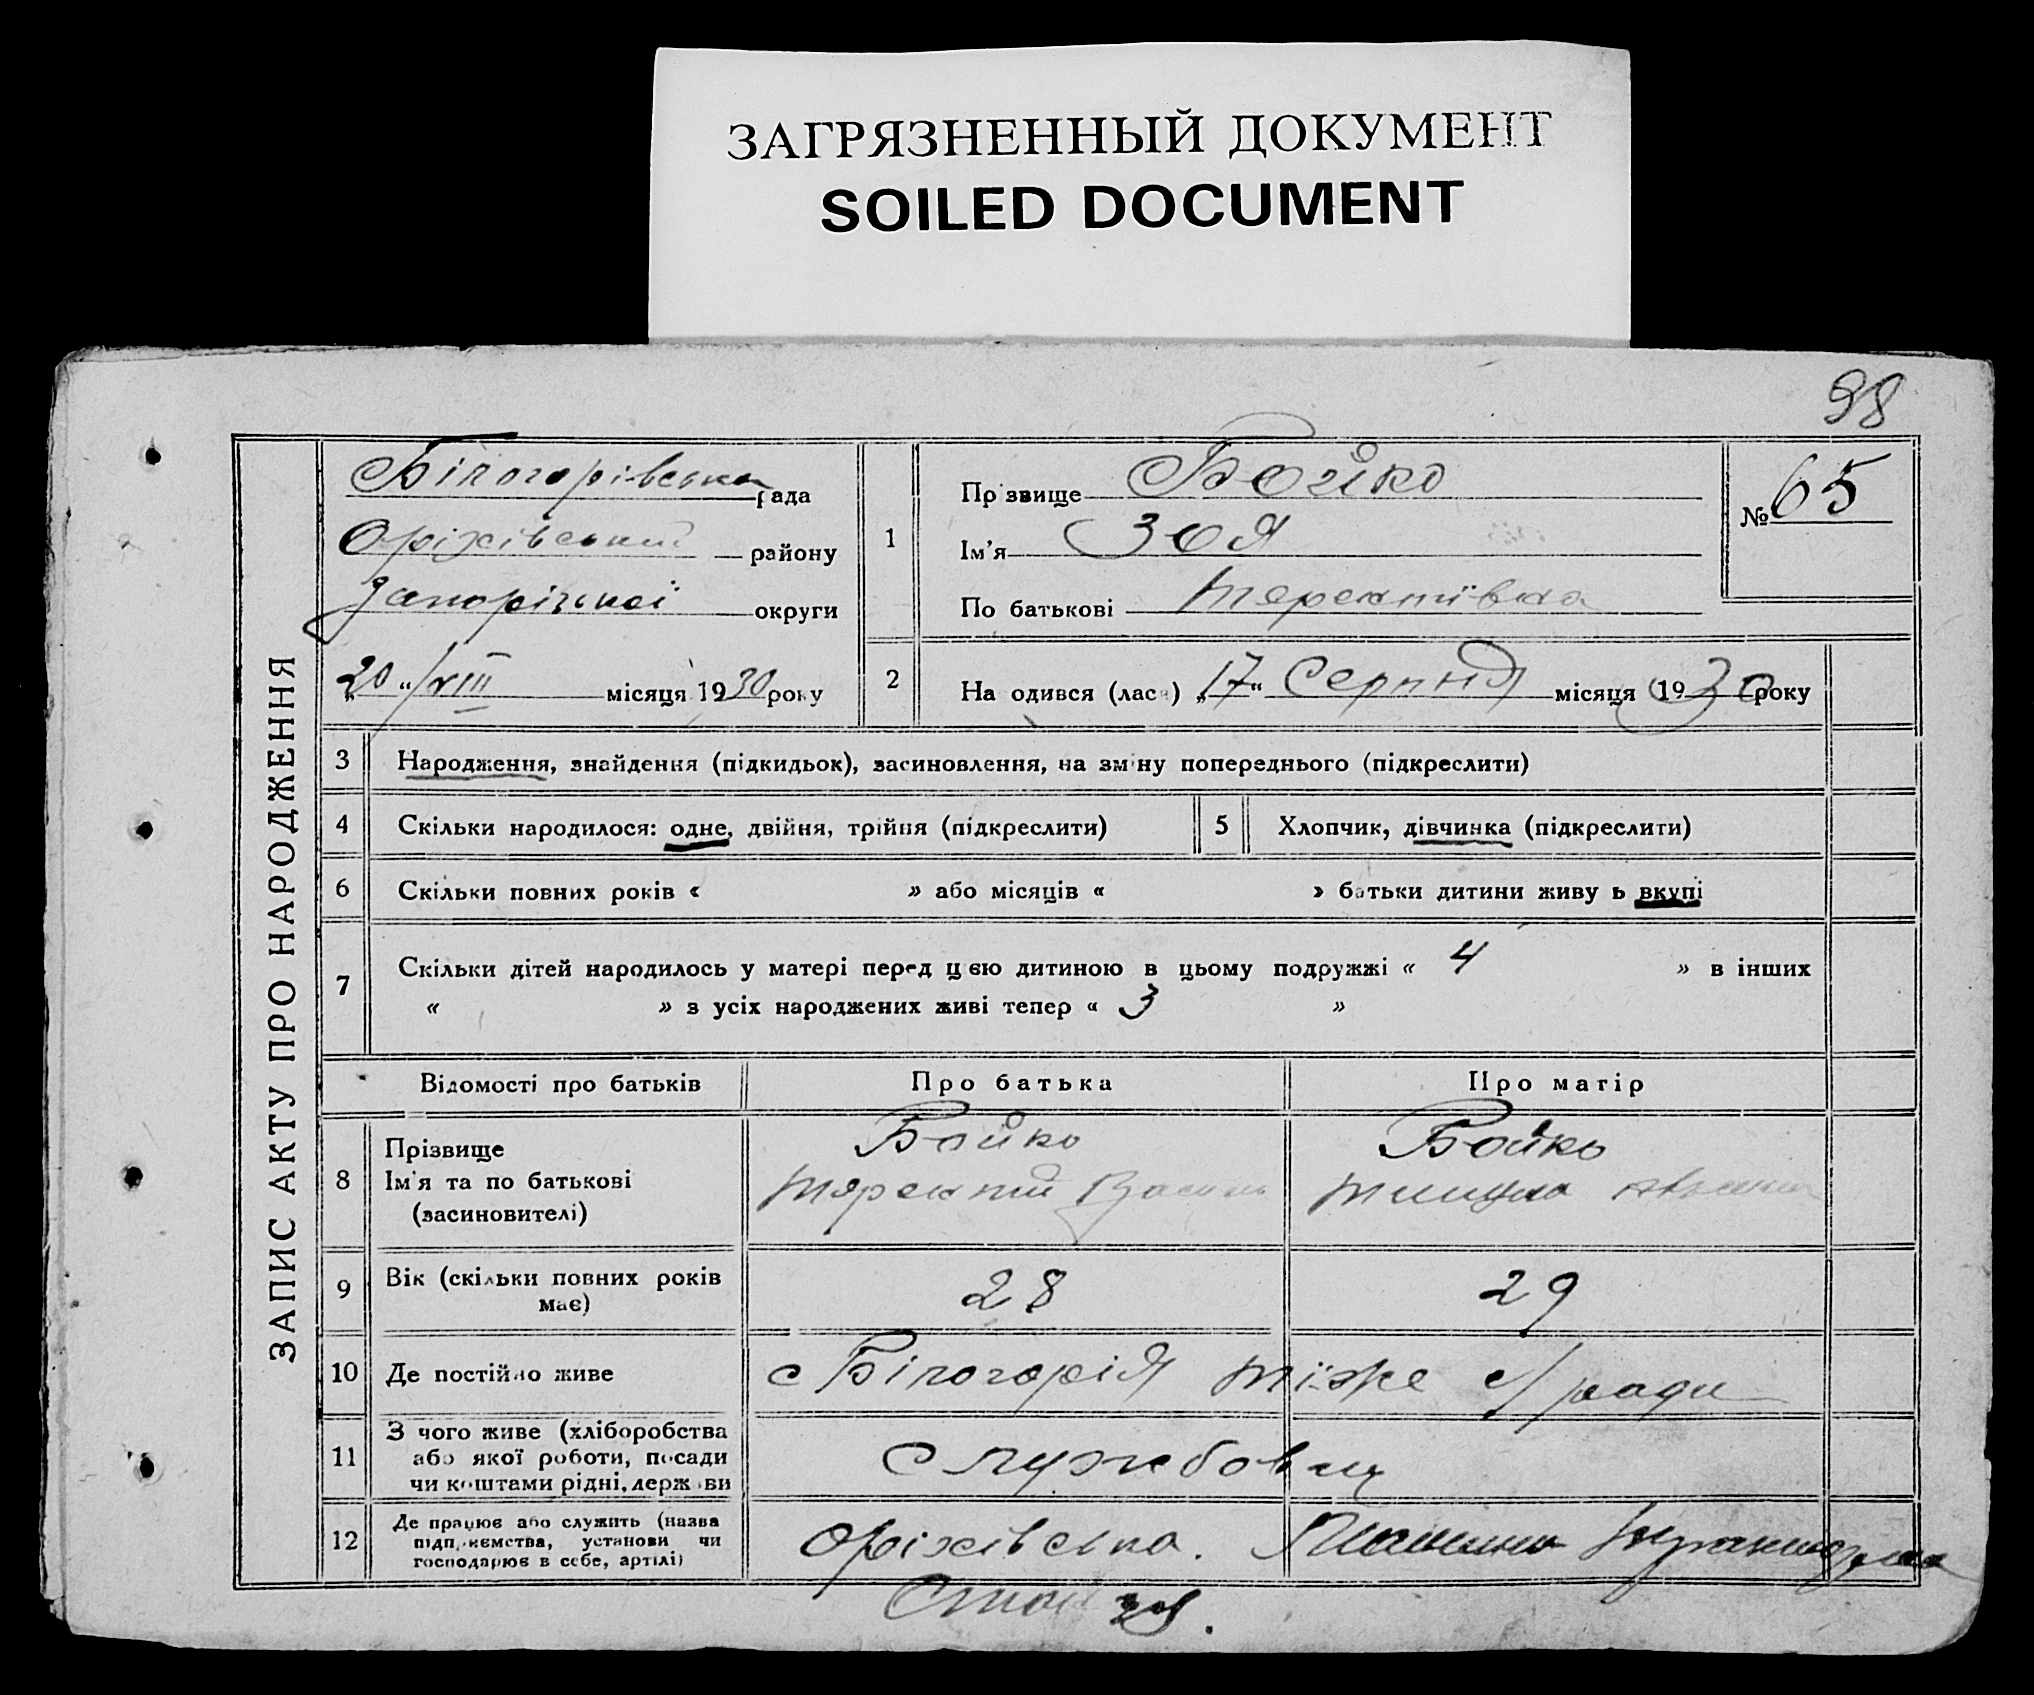 ЗАГРЯЗНЕННЫЙ ДОКУМЕНТ
SOILED DOCUMENT
98
ЗАПИС АКТУ ПРО НАРОДЖЕННЯ
Білогорівська рада
Оріхівський району
Запоріської округи
„20“/VIII місяця 1930 року
1
Прізвище Бойко
Ім'я Зоя
По батькові
№ 65
2 Народився (лася) „17“ Серпня місяця 1930 року
3 Народження, знайдення (підкидьок), засиновлення, на зміну попереднього (підкреслити)
4 Скільки народилося: одне, двійня, трійня (підкреслити)
5 Хлопчик, дівчинка (підкреслити)
6 Скільки повних років « » або місяців « » батьки дитини живуть вкупі
7 Скільки дітей народилось у матері перед цією дитиною в цьому подружжі « 4 » в інших
« » з усіх народжених живі тепер « 3 »
Відомості про батьків Про батька Про матір
8 Прізвище Бойко Бойко
Ім'я та по батькові
(засиновителі)
9 Вік (скільки повних років має) 28 29
10 Де постійно живе с Білогорія тіже с/ради
11 З чого живе (хліборобства
або якої роботи, посади
чи коштами рідні, держави
Службовец
12 Де працює або служить (назва
підприємства, установи чи
господарює в себе, артілі)
Оріхівська.